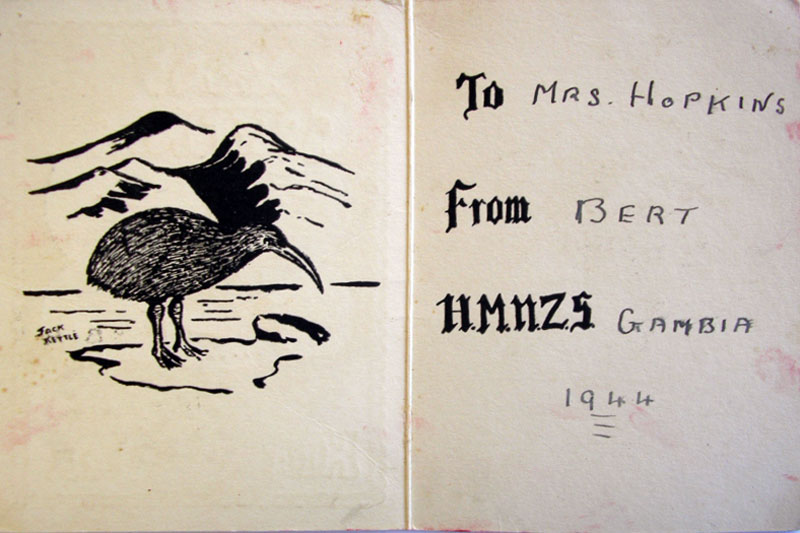 Jack
Kettle
To Mrs. Hopkins
From Bert
H.M.N.Z.S Gambia
1944